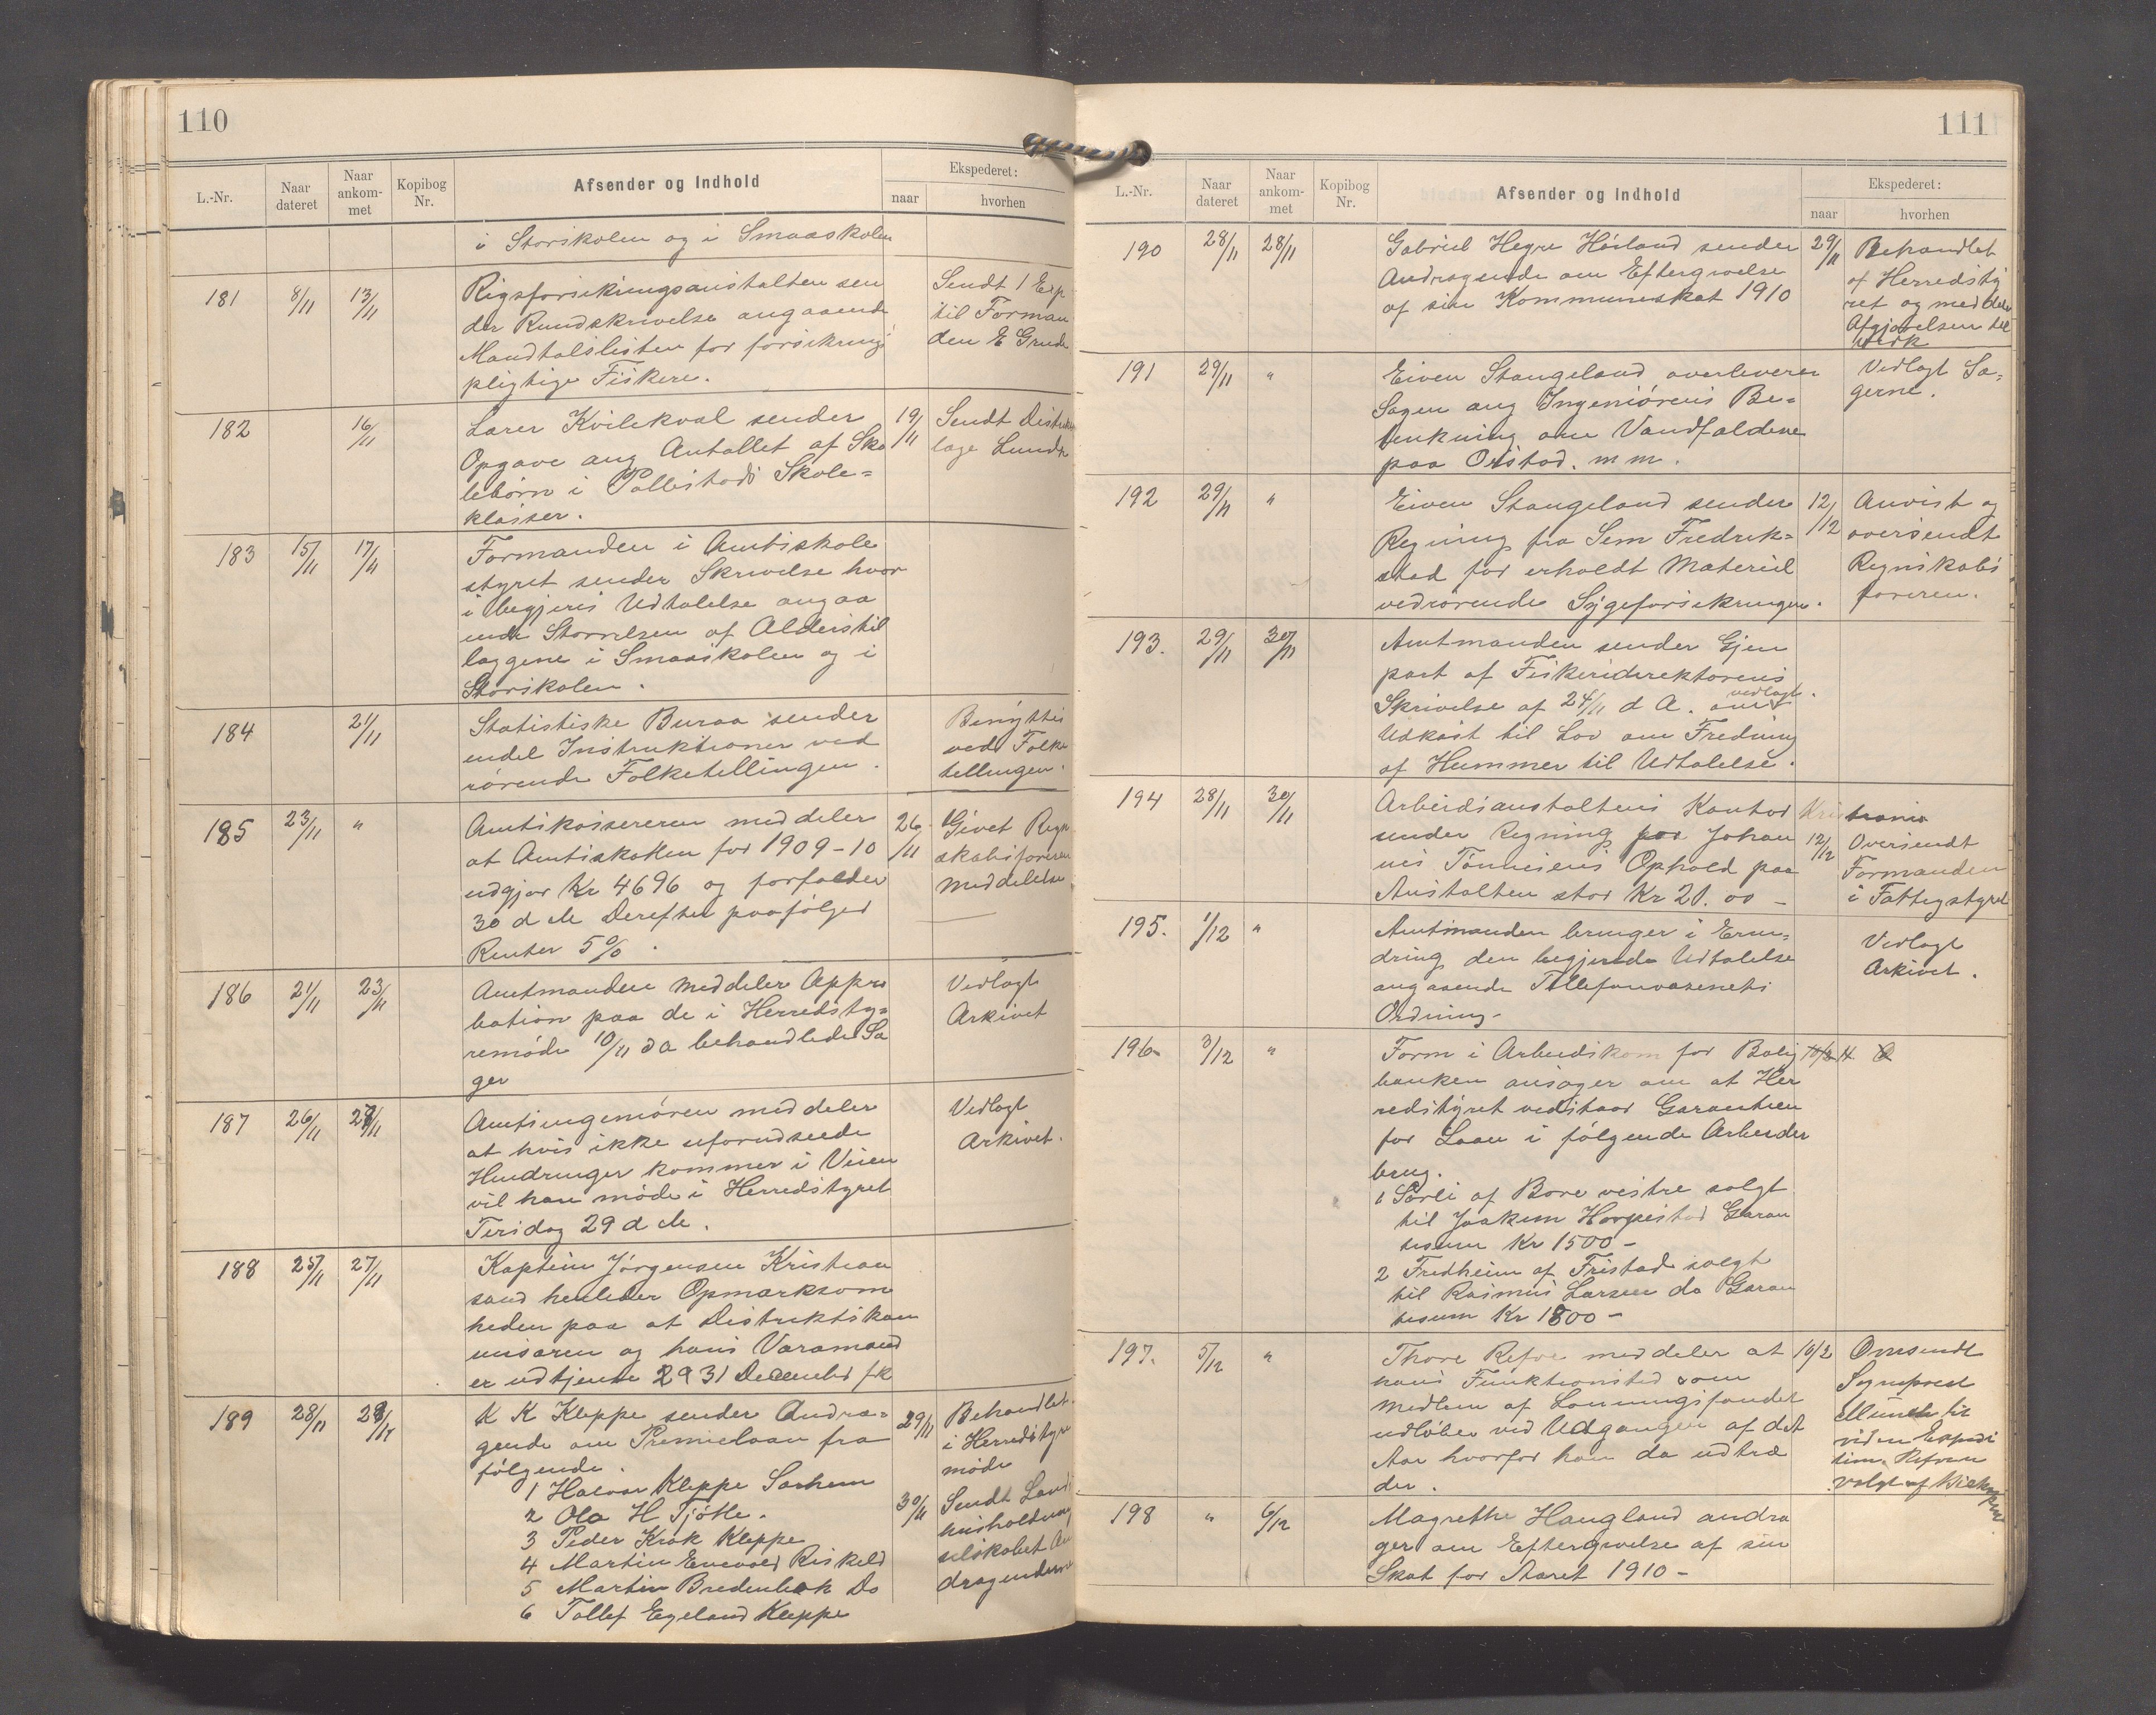 110
L.-Nr.
Naar dateret
Naar ankom-met
Kopibog Nr.
Afsender og Indhold
Ekspederet:
naar
hvorhen
i Storskolen og i Smaaskolen
181 8/11 13/11
Rigsforsikringsanstalten sen
der Rundskrivelse angaaende
Mandtalslisten for forsikrings
pligtige Fiskere.
Sendt 1 Exp
til Forman
den E Grude
182 16/11
Lærer Kvilekval sender
Opgave ang Antallet af Sko
lebörn i Pollestads Skole=
klasser.
19/11
Sendt Distrikts
læge Lunde
183 15/11 17/11
Formanden i Amtsskole
styret sender Skrivelse hvor
i begjæres Udtalelse angaa
ende Storrelsen af Alderstil
læggene i Smaaskolen og i
Storskolen.
184 21/11
Statistiske Buraa sender
endel Instruktioner ved
rörende Folketellingen.
Benyttes
ved Folke
tellingen.
185 23/11 "
Amtskassereren meddeler
at Amtsskatten for 1909-10
udgjør Kr 4696 og forfalder
30 d M Derefter paafölges
Renter 5%.
26/11
Givet Regn
skabsføreren
Meddelelse
186 21/11 23/11
Amtmanden Meddeler Appro
bation paa de i Herredsty=
remöde 10/11 da behandlede Sa
ger
Vedlagt
Arkivet
187 26/11 27/11
Amtsingeniören meddeler
at hvis ikke uforudseede
Hindringer kommer i Veien
vil han möde i Herredstyret
Tirsdag 29 d M.
Vedlagt
Arkivet.
188 25/11 27/11
Kaptein Jörgensen Kristian
sand henleder Opmærksom
heden paa at Distriktskom
misæren og hans Varamand
er udtjente 31 December fk
189 28/11 28/11
K K Kleppe sender Andra=
gende om Præmielaan fra
fölgende.
1 Halvor Kleppe Sørheim
2 Ola H Tjötte.
3 Peder Krak Kleppe
4 Martin Enevold Riskeld
5 Martin Bredenbek Do
6 Tollef Egeland Kleppe
29/11
Behandlet
i Herredstyre
möde
30/11
Sendt Land
husholdnings
selskabet An
dragenderne
111
L.-Nr.
Naar dateret
Naar ankom-met
Kopibog Nr.
Afsender og Indhold
Ekspederet:
naar
hvorhen
190 28/11 28/11
Gabriel Hegre Hörland sender
Andragende om Eftergivelse
af sin Kommuneskat 1910
29/11
Behandlet
af Herredsty
ret og meddelt
Afgjørelsen til
191 29/11 "
Eiven Stangeland overleverer
Sagen ang Ingeniörens Be=
tenkning om Vandfaldene
paa Orstad. m m.
Vedlagt Sa=
gerne.
192 29/11 "
Eiven Stangeland sender
Regning fra Sem Fredrik=
stad for erholdt Materiel
vedrørende Sygeforsikringen.
12/12
Anvist og
oversendt
Regnskabs
føreren.
193. 29/11 30/11
Amtmanden sender Gjen
part af Fiskeridirektörens
Skrivelse af 24/11 d A. vedlagt.
Udkast til Lov om Fredning
af Hummer til Udtalelse.
194 28/11 30/11
Arbeidsanstaltens Kontor Kristiania
sender Regning for Johan
nes Tönnesens Ophold paa
Anstalten stor Kr 21.00 -
12/12
Oversendt
Formanden
i Fattigstyret
195. 1/12 "
Amtmanden bringer i Erin=
dring den begjærede Udtalelse
angaaende Tellefonvæsenets
Ordning-
Vedlagt
Arkivet.
196- 3/12 "
Form i Arbeidskom for Bolig
banken ansøger om at Her
redstyret vedstaar Garantien
for Laan i fölgende Arbeider
brug.
1 Sörli af Bore vestre solgt
til Joakim Horpestad Garan
tisum Kr 1500 -
2 Fredheim af Fristad solgt
til Rasmus Larsen do Garan
tisum Kr 1800 -
197. 5/12 "
Thore Refve meddeler at
hans Funktionstid som
Medlem af Lønningsfondet
udløber ved Udgangen af det
Aar hvorfor han da udtræ
der.
10/2
Oversendt
Sogneprest
Münch til
viden Expedi
tion.
valgt af
198 " 6/12
Magrethe Haugland andra
ger om Eftergivelse af sin
Skat for Aaret 1910 -